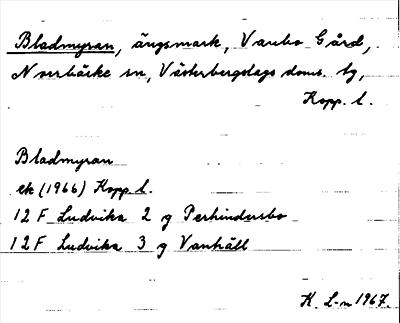 Bladmyran, ängsmark, Vanbo Gård,
Norrbärke sn, Västerbergslags doms. tg,
Kopp. l.
Bladmyran
ek (1966) Kopp. l.
12 F Ludvika 2 g Perhindersbo
12 F Ludvika 3 g Vanhäll
K. L-m 1967.